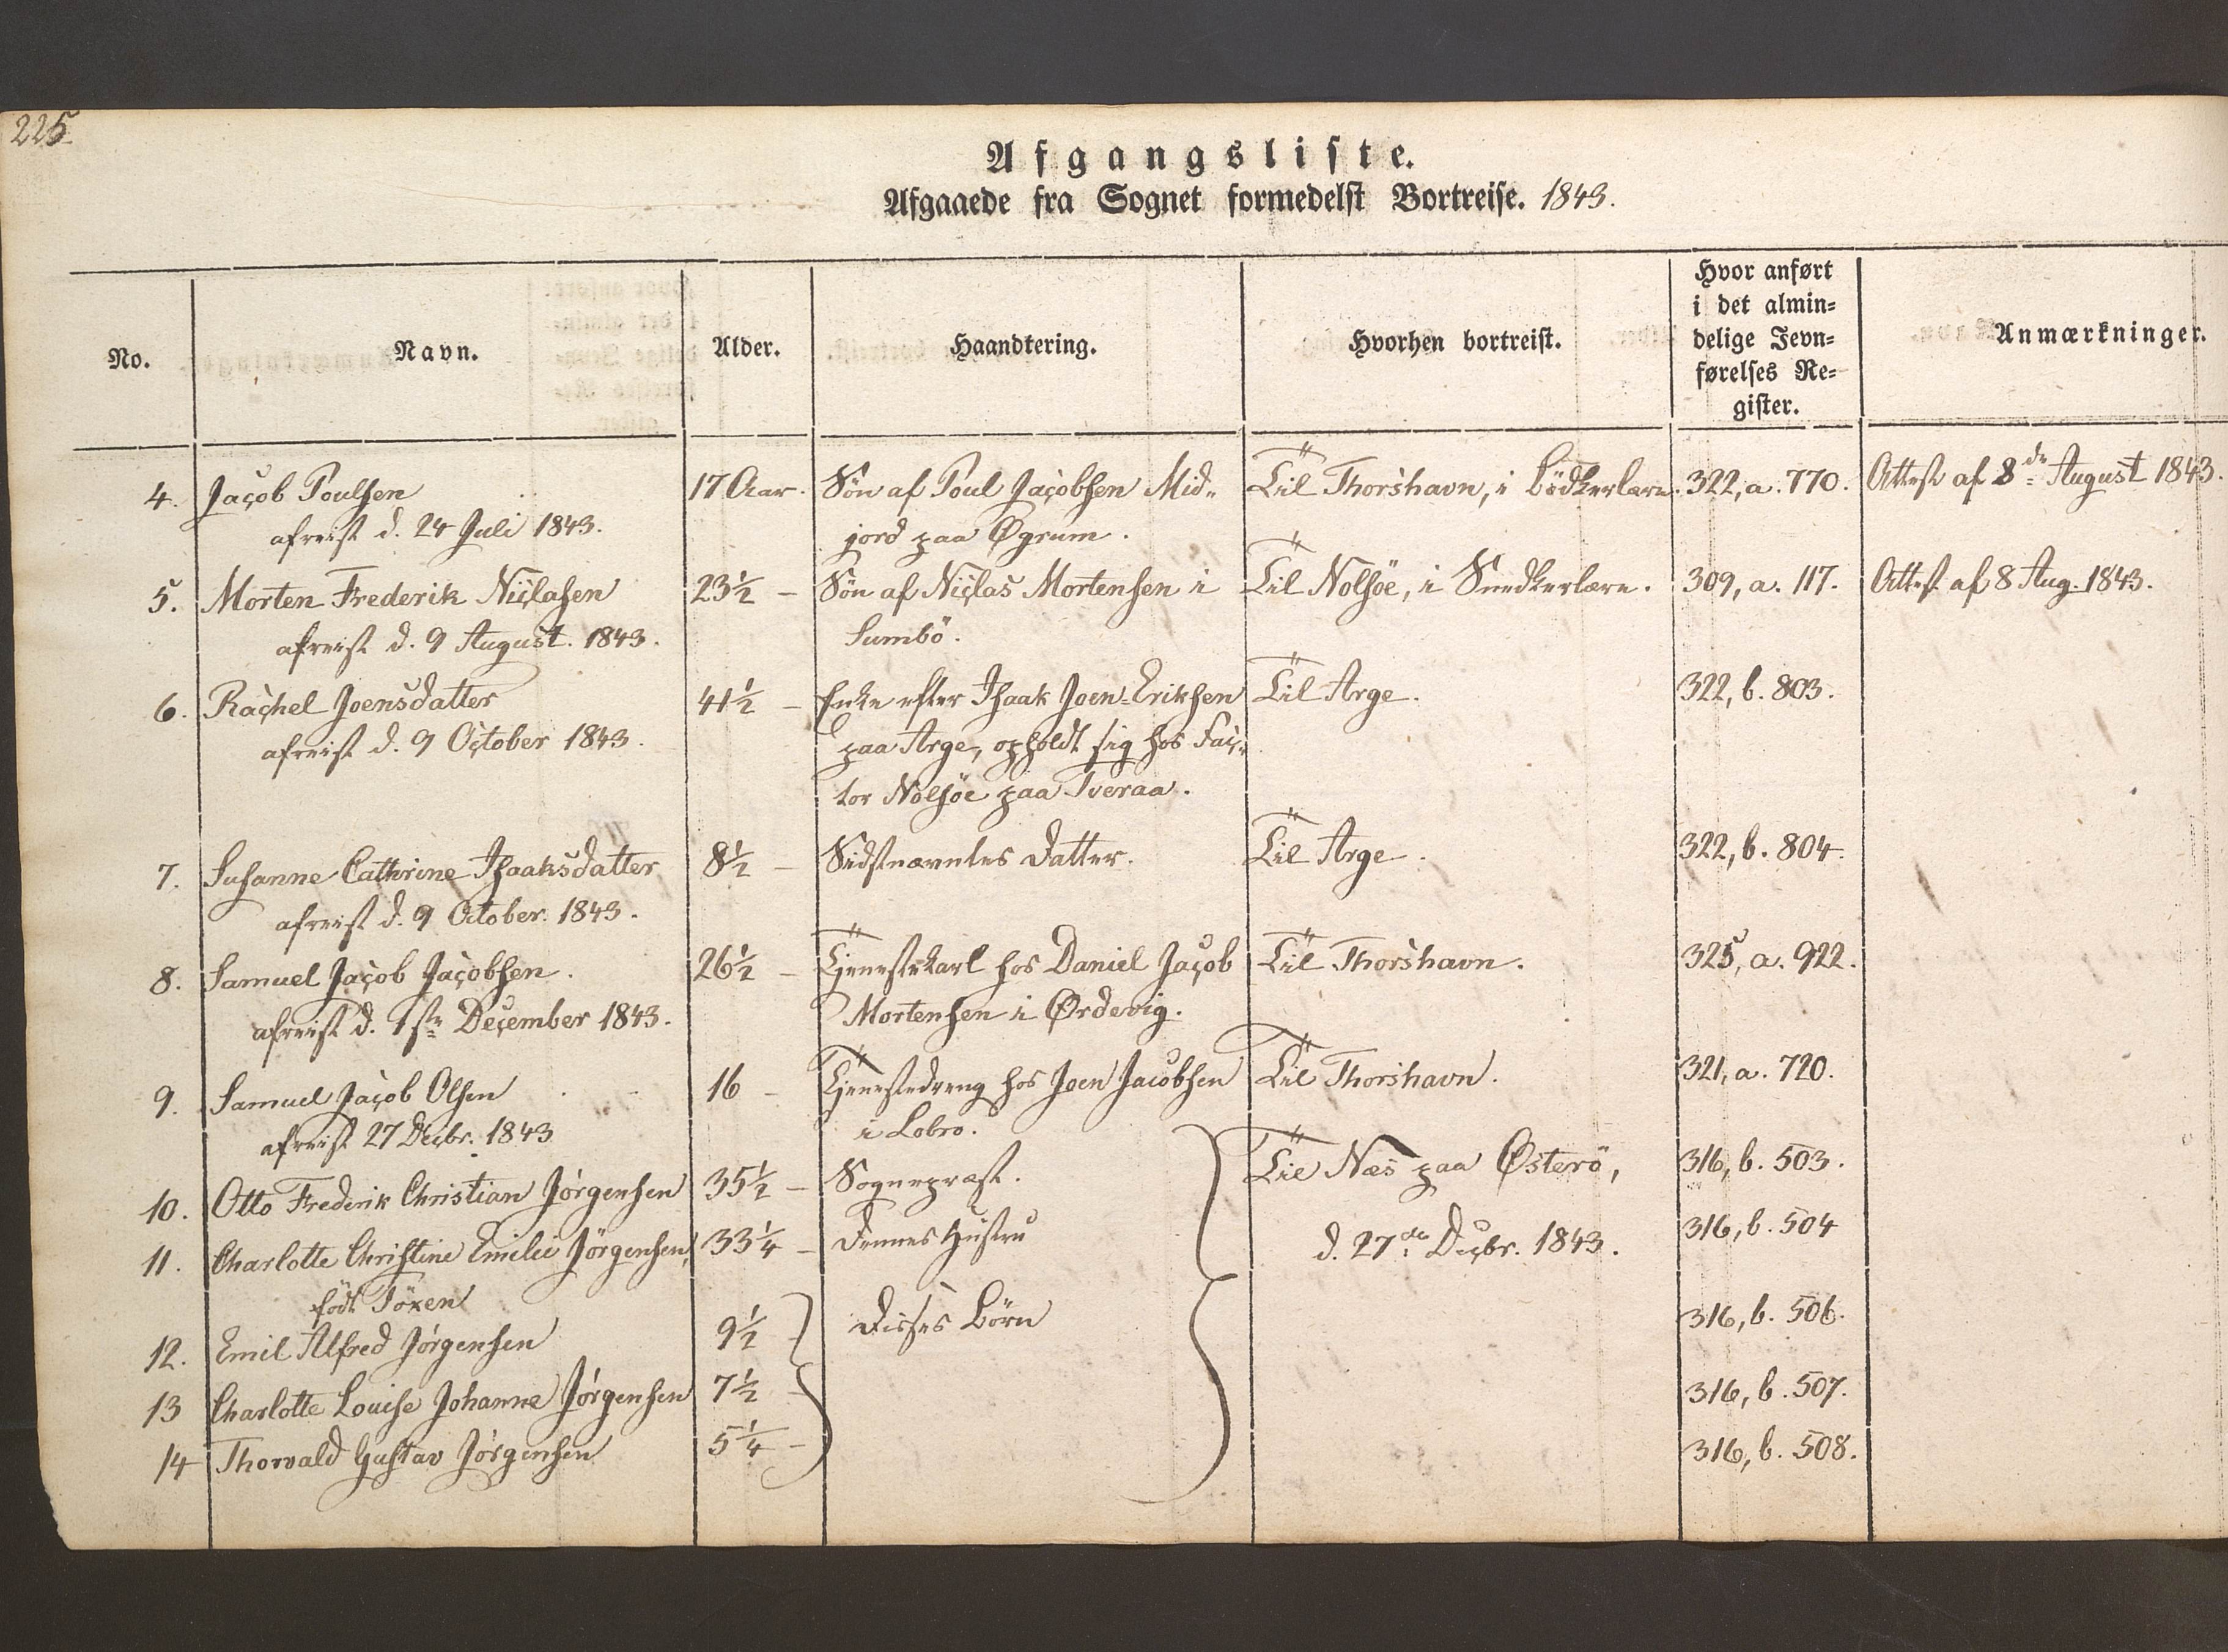 225
Afgangsliste.
Afgaaede fra Sognet formedelst Bortreise. 1843.
No. Navn. Alder. Haandtering. Hvorhen bortreist. Hvor anført i det almin= delige Jevn= førelses Re= gister. Anmærkninger.
4. Jacob Poulsen 17 Aar. Søn af Poul Jacobsen Mid= Til Thorshavn, i Bödkerlære. 322, a. 770. Attest af 8de August 1843.
afreist d. 24 Juli 1843. jord paa Øgrum.
5. Morten Frederik Niclasen 23½ - Søn af Niclas Mortensen i Til Nolsöe, i Snedkerlære. 309, a. 117. Attest af 8 Aug. 1843.
afreist d. 9 August. 1843. Sumbö.
6. Rachel Joensdatter 41½ - Enke efter Isaak Joen-Eriksen Til Arge. 322, b. 803.
afreist d. 9 October 1843. paa Arge, opholdt sig hos Fac=
tor Nolsöe paa Tveraa.
7. Susanne Cathrine Isaaksdatter 8½ - Sidstnævntes Datter. Til Arge. 322, b. 804.
afreist d. 9 October. 1843.
8. Samuel Jacob Jacobsen. 26½ - Tjenestekarl hos Daniel Jacob Til Thorshavn. 325, a. 922.
afreist d. 1ste December 1843. Mortensen i Ørdevig.
9. Samuel Jacob Olsen 16 - Tjenestedreng hos Joen Jacobsen Til Thorshavn. 321, a. 720.
afreist 27 Decbr. 1843 i Lobro.
10. Otto Frederik Christian Jörgensen 35½ - Sognepræst. Til Næs paa Østerö, 316, b. 503.
11. Charlotte Christine Emilie Jörgensen, 33¼ - Dennes Hustru d. 27de Decbr. 1843. 316, b. 504
födt Töxen
12. Emil Alfred Jörgensen 9½ - Disses Börn 316, b. 506.
13 Charlotte Louise Johanne Jörgensen 7½ - 316, b. 507.
14 Thorvald Gustav Jörgensen 5¼ - 316, b. 508.